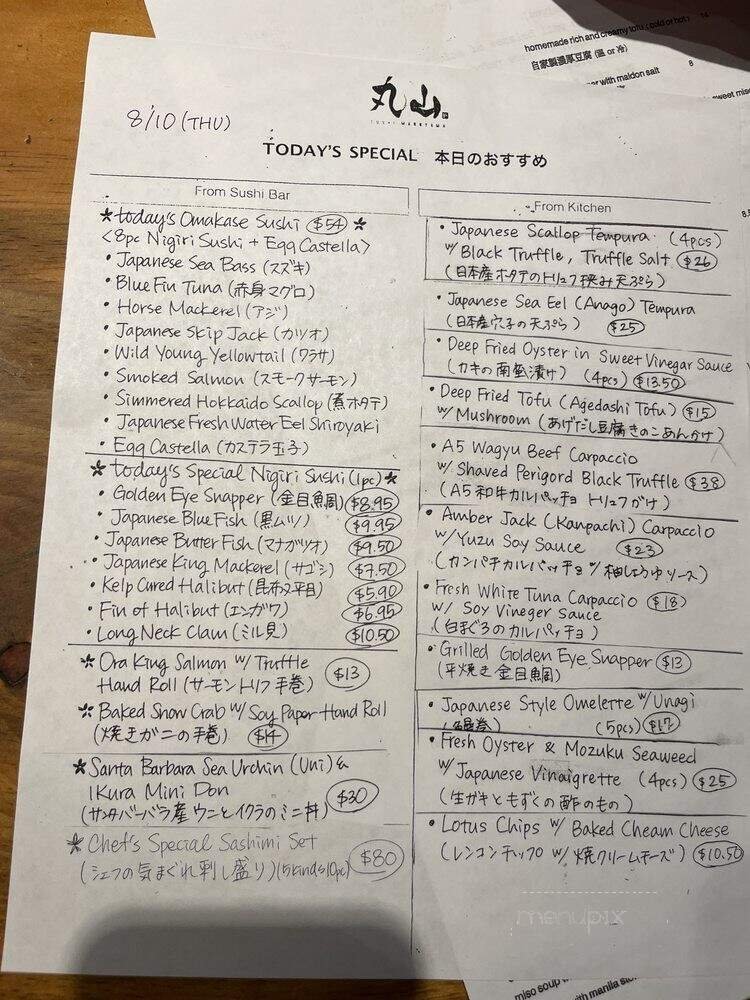 homemade rich and creamy tofu (cold or hot)
自家製濃厚豆腐 (温 or 冷)
8
with maldon salt
sweet miso
丸山
SUSHI MARUYAMA
8/10 (THU)
TODAY'S SPECIAL 本日のおすすめ
From Sushi Bar
*today's Omakase Sushi $54 *
<8pc Nigiri Sushi + Egg Castella>
• Japanese Sea Bass (スズキ)
• Blue Fin Tuna (赤身マグロ)
• Horse Mackerel (アジ)
• Japanese Skip Jack (カツオ)
• Wild Young Yellowtail (ワラサ)
• Smoked Salmon (スモークサーモン)
• Simmered Hokkaido Scallop (煮ホタテ)
• Japanese Fresh Water Eel Shiroyaki
• Egg Castella (カステラ玉子)
*today's Special Nigiri Sushi (1pc)*
• Golden Eye Snapper (金目鯛) $8.95
• Japanese Blue Fish (黒ムツ) $9.95
• Japanese Butter Fish (マナガツオ) $9.50
• Japanese King Mackerel (サゴシ) $7.50
• Kelp Cured Halibut (昆布〆平目) $5.90
• Fin of Halibut (エンガワ) $6.95
• Long Neck Clam (ミル貝) $10.50
* Ora King Salmon w/ Truffle
Hand Roll (サーモントリフ手巻) $13
* Baked Snow Crab w/ Soy Paper Hand Roll
(焼きガニの手巻) $14
* Santa Barbara Sea Urchin (Uni) &
Ikura Mini Don
(サンタバーバラ産ウニとイクラのミニ丼) $30
* Chef's Special Sashimi Set
(シェフの気まぐれ刺し盛り) (5kinds 10pc) $80
From Kitchen
• Japanese Scallop Tempura (4pcs)
w/ Black Truffle, Truffle Salt $26
(日本産ホタテのトリュフ挟み天ぷら)
• Japanese Sea Eel (Anago) Tempura
(日本産穴子の天ぷら) $25
• Deep Fried Oyster in Sweet Vinegar Sauce
(カキの南蛮漬け) (4pcs) $13.50
• Deep Fried Tofu (Agedashi Tofu) $15
w/ Mushroom (あげだし豆腐きのこあんかけ)
• A5 Wagyu Beef Carpaccio
w/ Shaved Perigord Black Truffle $38
(A5和牛カルパッチョ トリュフがけ)
• Amber Jack (Kanpachi) Carpaccio
w/ Yuzu Soy Sauce $23
(カンパチカルパッチョ w/ 柚しょうゆソース)
• Fresh White Tuna Carpaccio $18
w/ Soy Vineger Sauce
(白まぐろのカルパッチョ)
• Grilled Golden Eye Snapper $13
(焼き 金目鯛)
• Japanese Style Omelette w/ Unagi
(5pcs) $17
• Fresh Oyster & Mozuku Seaweed
w/ Japanese Vinaigrette (4pcs) $25
(生ガキともずくの酢のもの)
• Lotus Chips w/ Baked Cheam Cheese
(レンコンチップ w/ 焼クリームチーズ) $10.50
menupix
miso soup with manila